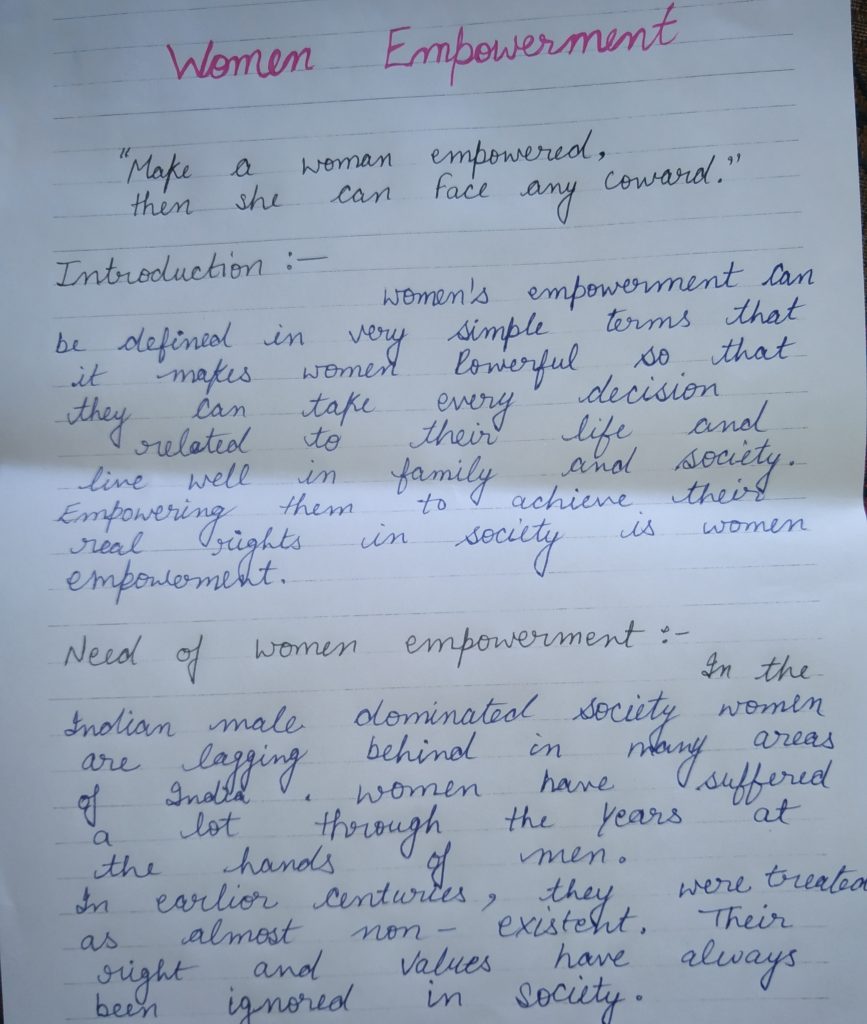 Women Empowerment
"Make a woman empowered,
then she can face any coward."
Introduction :-
women's empowerment can
be defined in very simple terms that
it makes women Powerful so that
they can take every decision
related to their life and
live well in family and society.
Empowering them to achieve their
real rights in society is women
empowerment.
Need of women empowerment :-
In the
Indian male dominated society women
are lagging behind in many areas
of India . women have suffered
a lot through the years at
the hands of men.
In earlior centuries, they were treated
as almost non - existent. Their
right and values have always
been ignored in society.